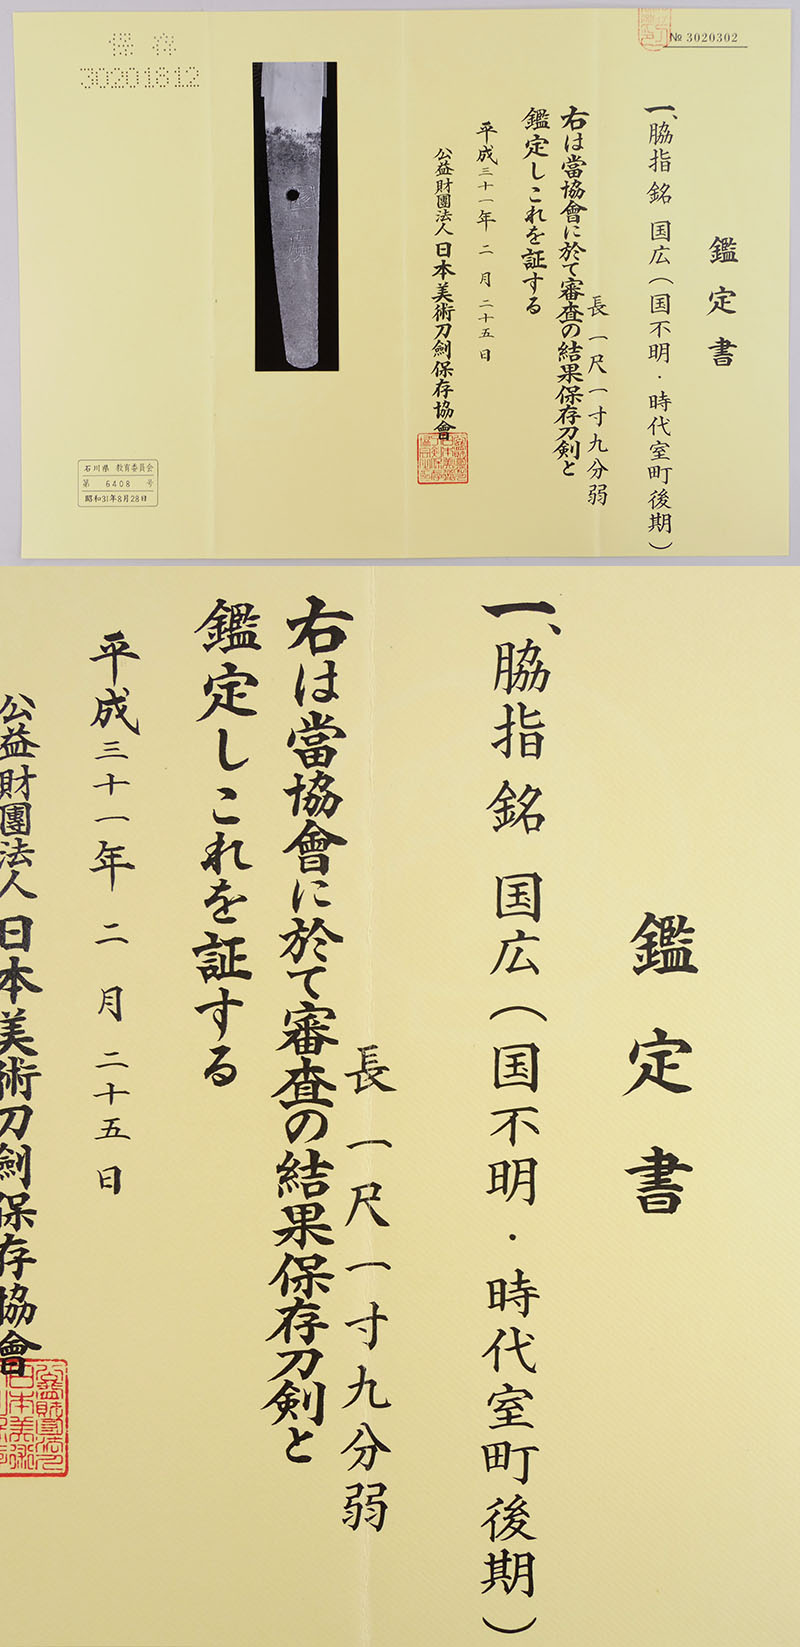 № 3020302
鑑定書
一、脇指 銘 国広(国不明・時代室町後期)
長 一尺一寸九分弱
右は當協會に於て審査の結果保存刀剣と
鑑定しこれを証する
平成三十一年 二 月 二十五 日
公益財團法人 日本美術刀劍保存協會
保存
30201812
石川県 教育委員会
第 6408 号
昭和31年8月28日
鑑定書
一、脇指 銘 国広(国不明・時代室町後期)
長 一尺一寸九分弱
右は當協會に於て審査の結果保存刀剣と
鑑定しこれを証する
平成三十一年 二 月 二十五 日
公益財團法人 日本美術刀劍保存協會